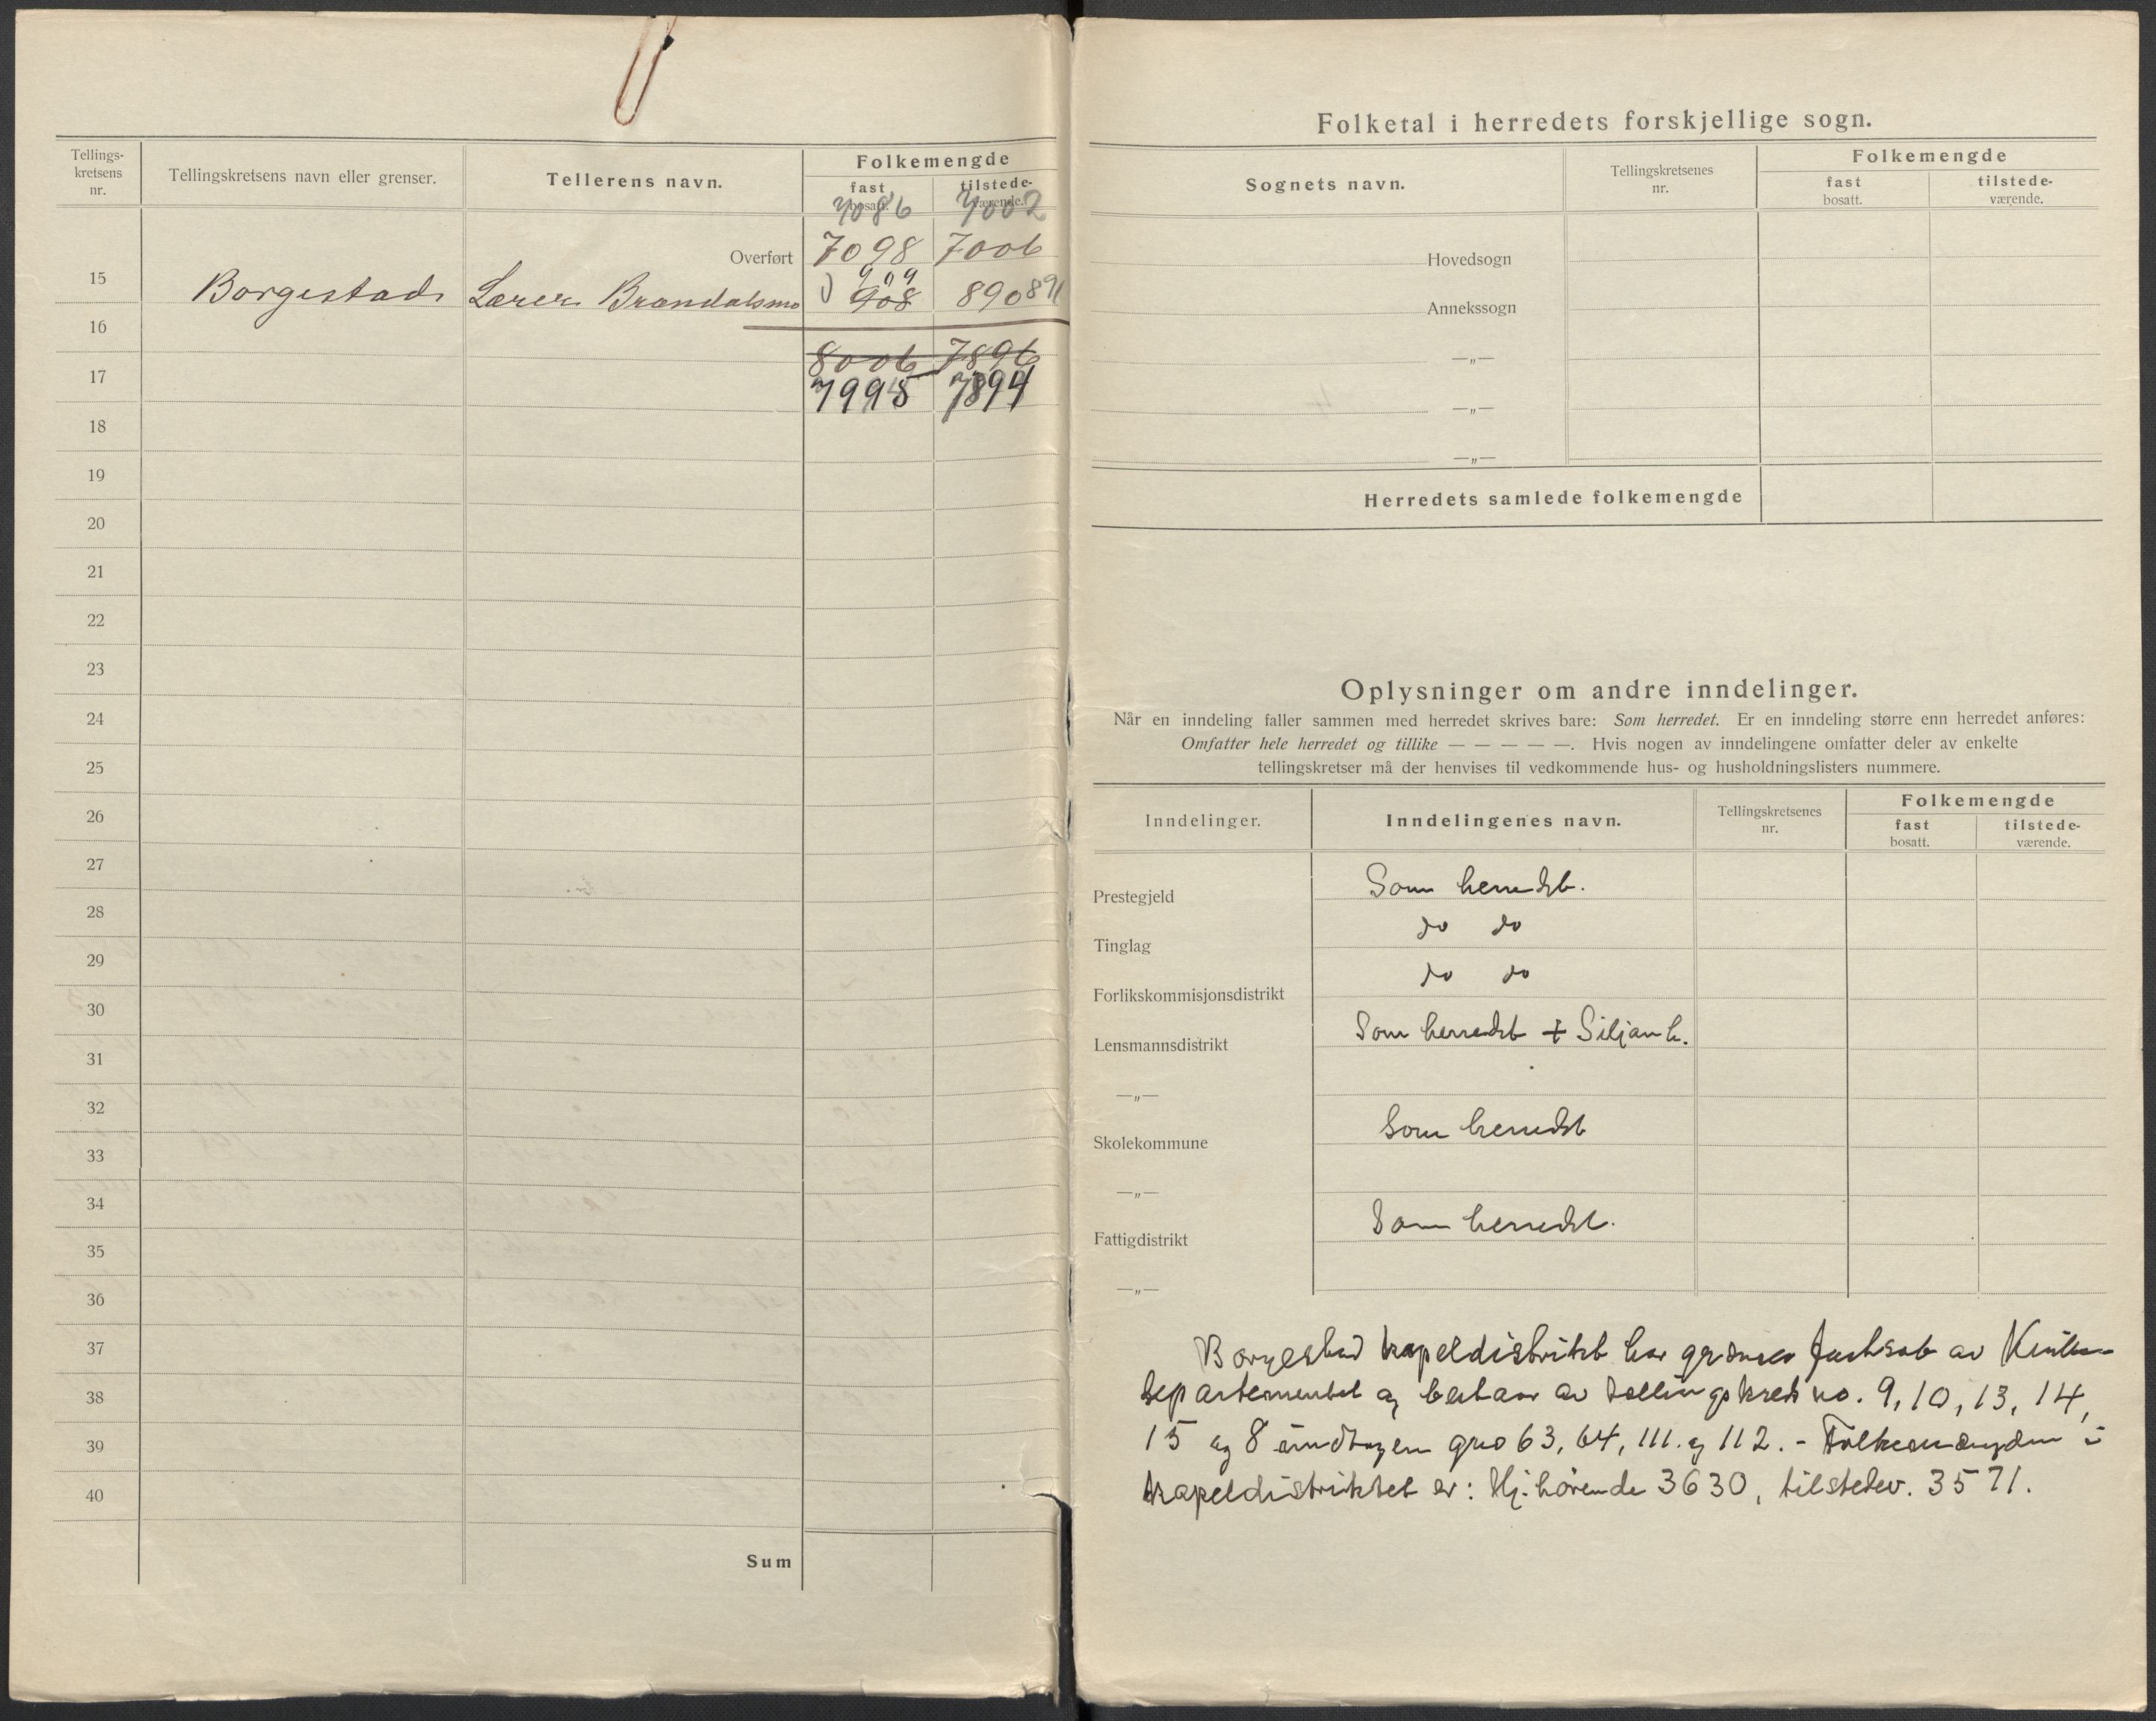 Tellings-
kretsens
nr.
Tellingskretsens navn eller grenser.
Tellerens navn.
Folkemengde
fast
bosatt.
tilstede-
værende.
7086 7002
Overført 7098 7006
909 891
15 Borgestad Lærer Brandalsmo 908 890
16
8006 7896
17 7995 7894
18
19
20
21
22
23
24
25
26
27
28
29
30
31
32
33
34
35
36
37
38
39
40
Sum
Folketal i herredets forskjellige sogn.
Sognets navn.
Tellingskretsenes
nr.
Folkemengde
fast
bosatt.
tilstede-
værende.
Hovedsogn
Annekssogn
—„—
—„—
—„—
Herredets samlede folkemengde
Oplysninger om andre inndelinger.
Når en inndeling faller sammen med herredet skrives bare: Som herredet. Er en inndeling større enn herredet anføres:
Omfatter hele herredet og tillike — — — — —. Hvis nogen av inndelingene omfatter deler av enkelte
tellingskretser må der henvises til vedkommende hus- og husholdningslisters nummere.
Inndelinger.
Inndelingenes navn.
Tellingskretsenes
nr.
Folkemengde
fast
bosatt.
tilstede-
værende.
Prestegjeld Som herredet.
Tinglag do do
Forlikskommisjonsdistrikt do do
Lensmannsdistrikt Som herredet + Siljan h.
—„—
Skolekommune Som herredet
—„—
Fattigdistrikt Som herredet.
—„—
Borgestad kapeldistrikt har grænser fastsat av Kirke-
departementet og bestaar av tellingskrets no. 9, 10, 13, 14,
15 og 8 undtagen gno 63, 64, 111 og 112. - Folkemængden i
kapeldistriktet er: Hj.hörende 3630, tilstedev. 3571.